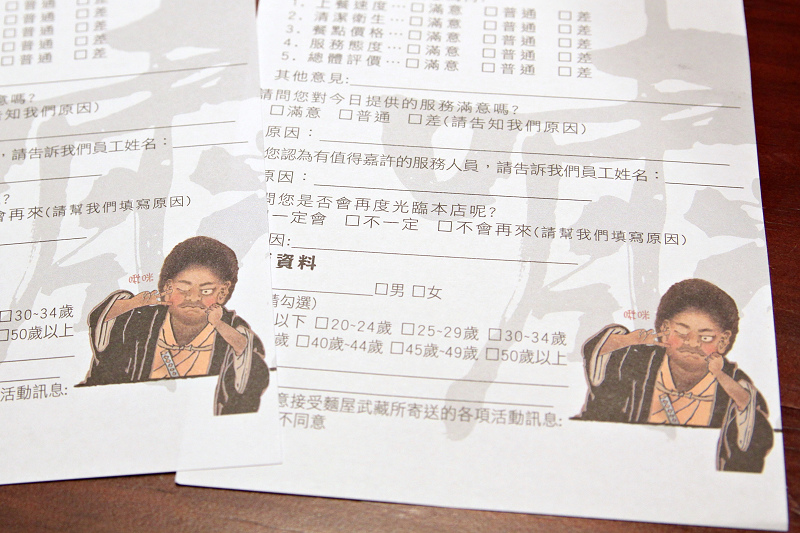 □普通 □差
□普通 □差
□普通 □差
□普通 □差
意嗎?
告知我們原因)
，請告訴我們員工姓名：
?
再來(請幫我們填寫原因)
呲咪
□30~34歲
□50歲以上
活動訊息:
1. 上餐速度…□滿意 □普通 □差
2. 清潔衛生…□滿意 □普通 □差
3. 餐點價格…□滿意 □普通 □差
4. 服務態度…□滿意 □普通 □差
5. 總體評價…□滿意 □普通 □差
其他意見:
請問您對今日提供的服務滿意嗎?
□滿意 □普通 □差(請告知我們原因)
原因：
您認為有值得嘉許的服務人員，請告訴我們員工姓名：
原因：
問您是否會再度光臨本店呢?
一定會 □不一定 □不會再來(請幫我們填寫原因)
因:
資料
□男 □女
請勾選)
以下 □20~24歲 □25~29歲 □30~34歲
歲 □40歲~44歲 □45歲~49歲 □50歲以上
呲咪
意接受麵屋武藏所寄送的各項活動訊息:
不同意